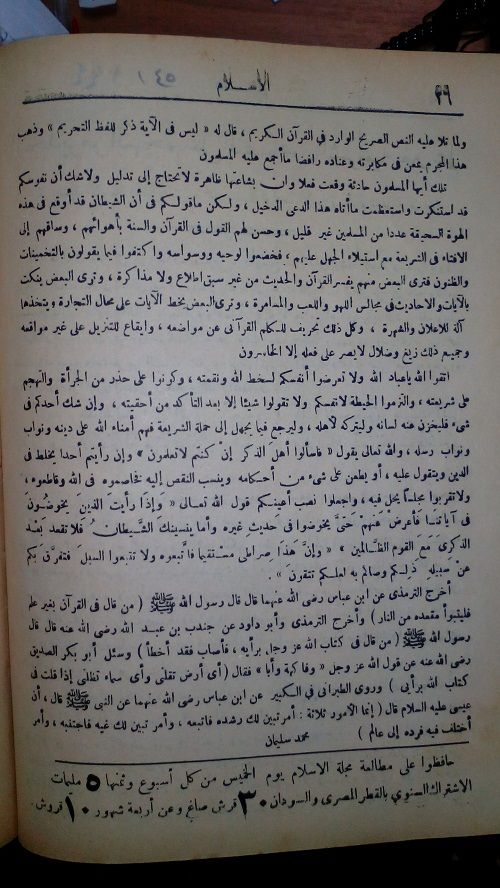 ٢٦
الإسلام
ولما تلا عليه النص الصريح الوارد في القرآن الكريم ، قال له « ليس في الآية ذكر للفظ التحريم » وذهب
هذا المجرم يمعن في مكابرته وعناده رافضا ما أجمع عليه المسلمون
تلك أيها المسلمون حادثة وقعت فعلا وان بشاعتها ظاهرة لا تحتاج إلى تدليل ولا شك أن نفوسكم
قد استنكرت واستعظمت ما أتاه هذا الدعى الدخيل ، ولكن ما قولكم في أن الشيطان قد أوقع في هذه
الهوة السحيقة عددا من المسلمين غير قليل ، وحسن لهم القول في القرآن والسنة بأهوائهم ، وساقهم إلى
الافتاء في الشريعة مع استيلاء الجهل عليهم ، فخضعوا لوحيه ووسواسه واكتفوا فيما يقولون بالتخمينات
والظنون فترى البعض منهم يفسر القرآن والحديث من غير سبق اطلاع ولا مذاكرة ، وترى البعض ينكت
بالآيات والاحاديث في مجالس اللهو واللعب والمسامرة ، وترى البعض يخط الآيات على محال التجارة ويتخذها
آلة للاعلان والشهرة ، وكل ذلك تحريف للكلام القرآنى عن مواضعه ، وايقاع للتنزيل على غير مواقعه
وجميع ذلك زيغ وضلال لا يصر على فعله إلا الخاسرون
اتقوا الله ياعباد الله ولا تعرضوا أنفسكم لسخط الله ونقمته ، وكونوا على حذر من الجرأة والتهجم
على شريعته ، والتزموا الحيطة لانفسكم ولا تقولوا شيئا إلا بعد التأكد من أحقيته ، وإن شك أحدكم في
شىء فليخزن عنه لسانه وليتركه لأهله ، وليرجع فيما يجهل إلى حملة الشريعة فهم أمناء الله على دينه ونواب
ونواب رسله ، والله تعالى يقول « فاسألوا أهل الذكر إن كنتم لا تعلمون » وإن رأيتم أحدا يخلط في
الدين ويتقول عليه ، أو يطعن على شىء من أحكامه وينسب النقص إليه فخاصموه في الله وقاطعوه ،
ولا تقربوا مجلسا يحل فيه ، واجعلوا نصب أعينكم قول الله تعالى « وَإِذَا رأيتَ الذينَ يخوضُونَ
في آياتنا فأعرضْ عَنهمْ حَتَّى يخوضوا في حديث غيره وأما ينسينك الشَّيطانُ فلا تقعد بَعْدَ
الذكرى مَعَ القوم الظَّالمين » « وإنَّ هَذَا صِراطى مستقيما فاتَّبعوه ولا تتبعوا السبلَ فتفرَّقَ بكم
عنْ سبيلهِ ذلِكم وصاكم به لعلكم تتقونَ » .
أخرج الترمذى عن ابن عباس رضى الله عنهما قال قال رسول الله ﷺ ( من قال في القرآن بغير علم
فليتبوأ مقعده من النار ) وأخرج الترمذى وأبو داود عن جندب بن عبد الله رضى الله عنه قال قال
رسول الله ﷺ ( من قال في كتاب الله عز وجل برأيه ، فأصاب فقد أخطأ ) وسئل أبو بكر الصديق
رضى الله عنه عن قول الله عز وجل « وفاكهة وأبا » فقال ( أى أرض تقلنى وأى سماء تظلنى إذا قلت في
كتاب الله برأيى ) وروى الطبرانى في الكبير عن ابن عباس رضى الله عنهما عن النبي ﷺ قال ، أن
عيسى عليه السلام قال ( إنما الأمور ثلاثة : أمر تبين لك رشده فاتبعه ، وأمر تبين لك غيه فاجتنبه ، وأمر
أختلف فيه فرده إلى عالم )
محمد سليمان
حافظوا على مطالعة مجلة الاسلام يوم الخميس من كل أسبوع وثمنها ٥ مليمات
الاشتراك السنوي بالقطر المصرى والسودان ٣٠ قرش صاغ وعن أربعة شهور ١٠ قروش .